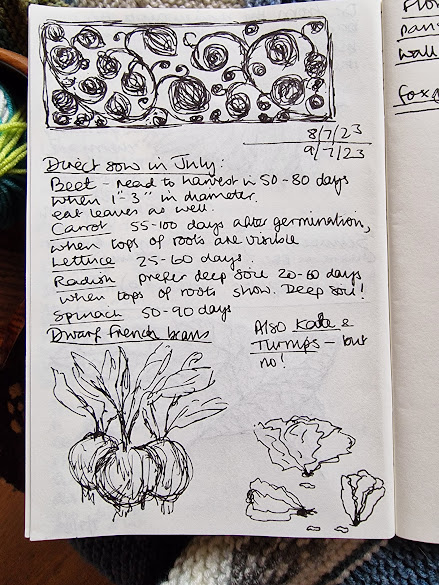 8/7/23
9/7/23
Direct sow in July:
Beet - ready to harvest in 50-80 days
when 1"-3" in diameter.
eat leaves as well.
Carrot 55-100 days after germination,
when tops of roots are visible
Lettuce 25-60 days.
Radish prefer deep soil 20-60 days
when tops of roots show. Deep soil!
Spinach 50-90 days
Dwarf French beans
Also Kale &
Turnips - but
no!